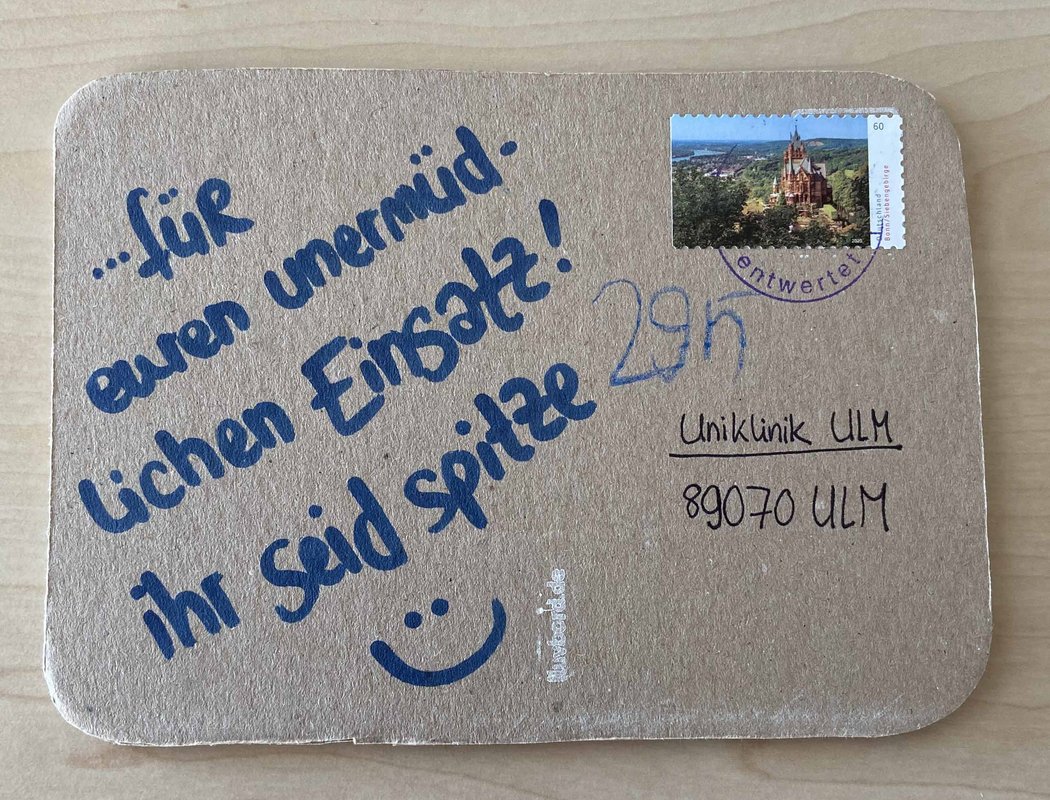 ...für
euren unermüd-
lichen Einsatz!
ihr seid spitze
60
Deutschland
Bonn/Siebengebirge
entwertet
Uniklinik ULM
89070 ULM
luvbord.de